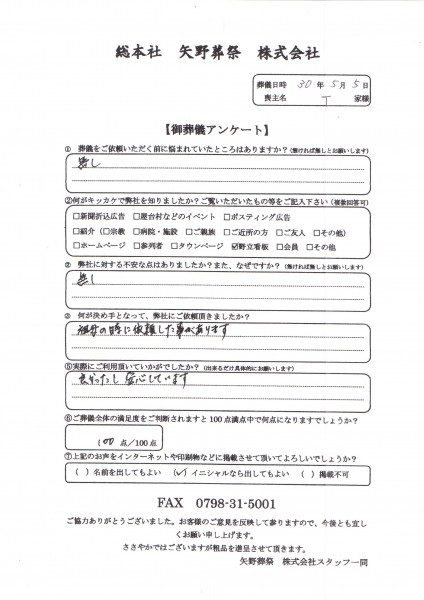 総本社 矢野葬祭 株式会社
葬儀日時 30年5月5日
喪主名 T 家様
【御葬儀アンケート】
① 葬儀をご依頼いただく前に悩まれていたところはありますか?(無ければ無しとお願いします)
無し
②何がキッカケで弊社を知りましたか?ご覧いただいたもの等をご記入下さい(複数回答可)
□新聞折込広告 □屋台村などのイベント □ポスティング広告
□紹介(□宗教 □病院・施設 □ご親族 □ご近所の方 □ご友人 □その他)
□ホームページ □参列者 □タウンページ ☑野立看板 □会員 □その他
② 弊社に対する不安な点はありましたか?また、なぜですか?(無ければ無しとお願いします)
無し
③ 何が決め手となって、弊社にご依頼頂きましたか?
祖父の時に依頼した事があります
⑤実際にご利用頂いていかがでしたか?(出来るだけ具体的にお願いします)
良かったし 安心しています
⑥ご葬儀全体の満足度をご判断されますと100点満点中で何点になりますでしょうか?
100 点/100点
⑦上記のお声をインターネットや印刷物などに掲載させて頂いてよろしいでしょうか?
( )名前を出してもよい (✓)イニシャルなら出してもよい ( )掲載不可
FAX 0798-31-5001
ご協力ありがとうございました。お客様のご意見を反映して参りますので、今後とも宜し
くお願い申し上げます。
ささやかではございますが粗品を進呈させて頂きます。
矢野葬祭 株式会社スタッフ一同